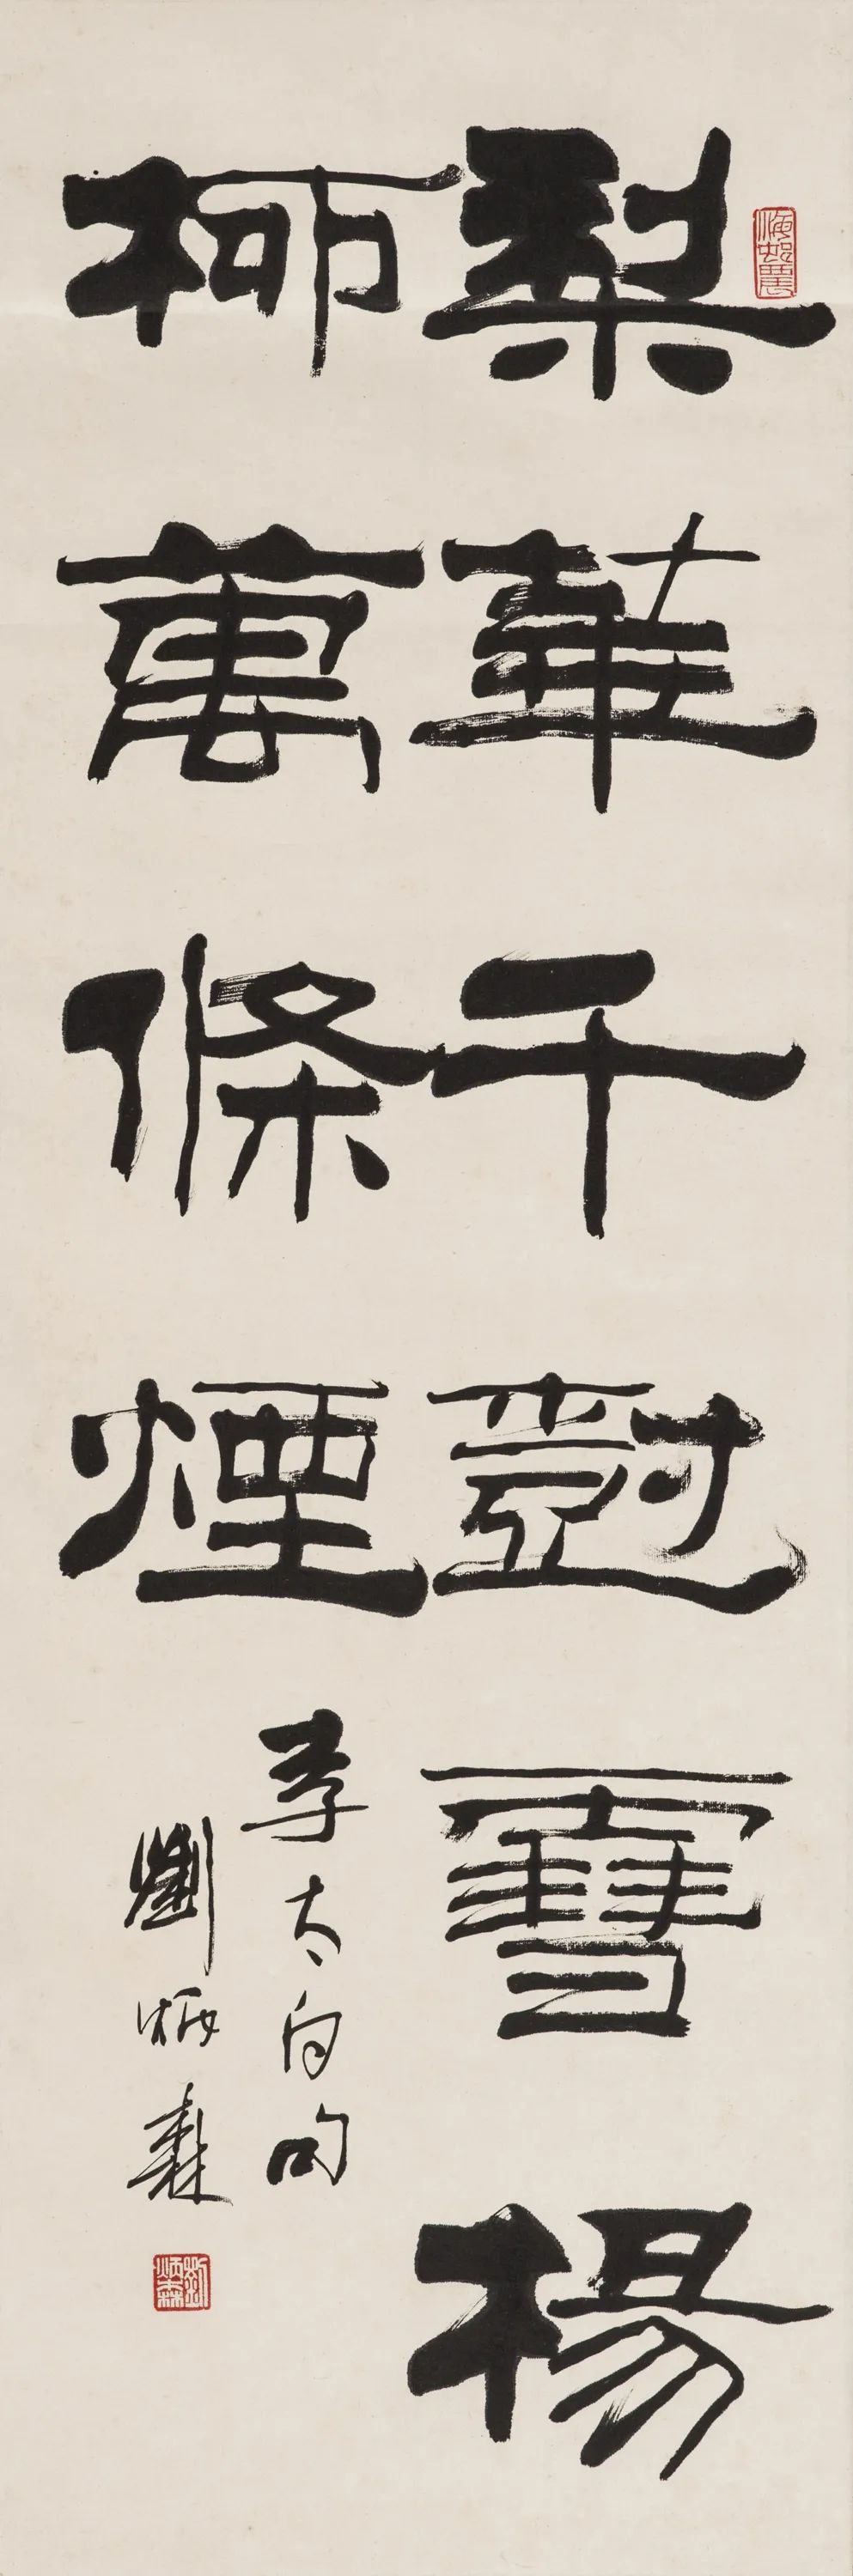 梨華千尌雪楊
柳萬條煙
李太白句
劉炳森
海邨農
劉炳森